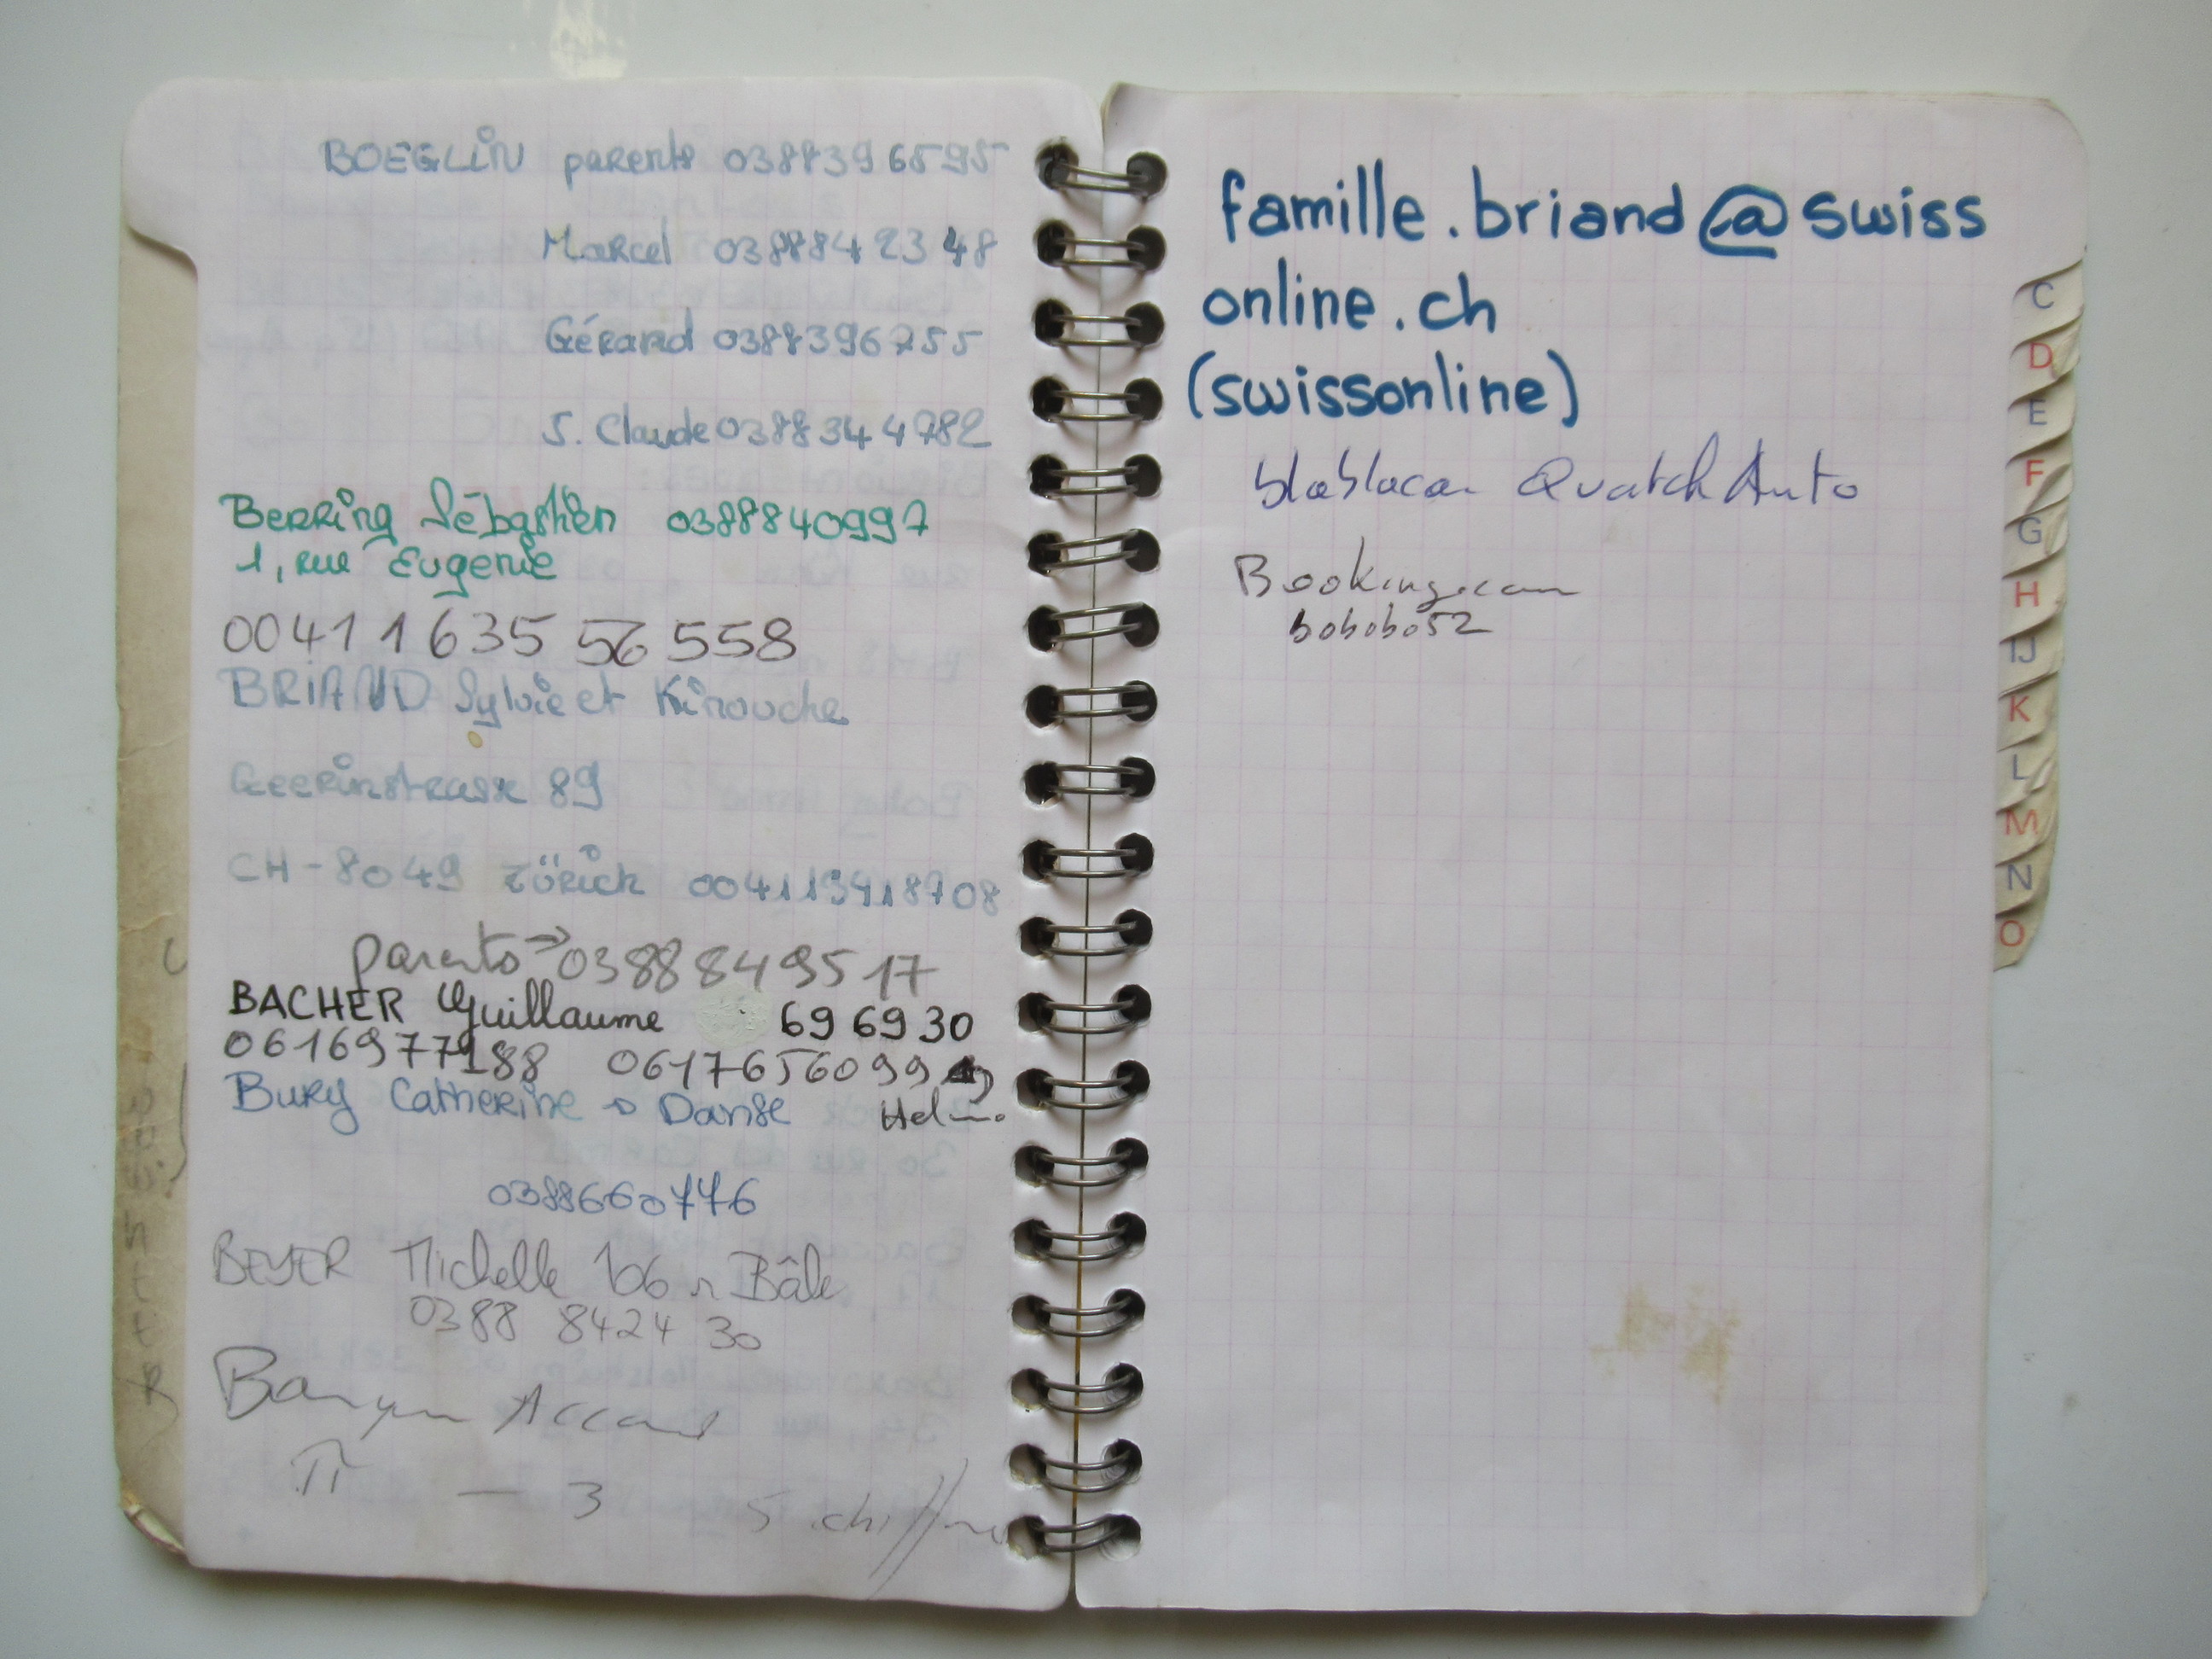 BOEGLIN parents 0388396595
Marcel 0388842348
Gérard 0388396755
J. Claude 0388344782
Berring Sébastien 0388840997
1, rue Eugenie
00411 635 56 558
BRIAND Sylvie et Kinouche
Geeringstrasse 89
CH-8049 Zürich 004113418708
parents → 0388849517
BACHER Guillaume 69 69 30
0616977188 0617656099
Bury Catherine → Danse
0388660776
BEYER Michelle 106 r Bâle
0388 8424 30
3 5 chiffres
famille.briand@swiss
online.ch
(swissonline)
blablacar Quatch Auto
Booking.com
bobobo52
C
D
E
F
G
H
IJ
K
L
M
N
O